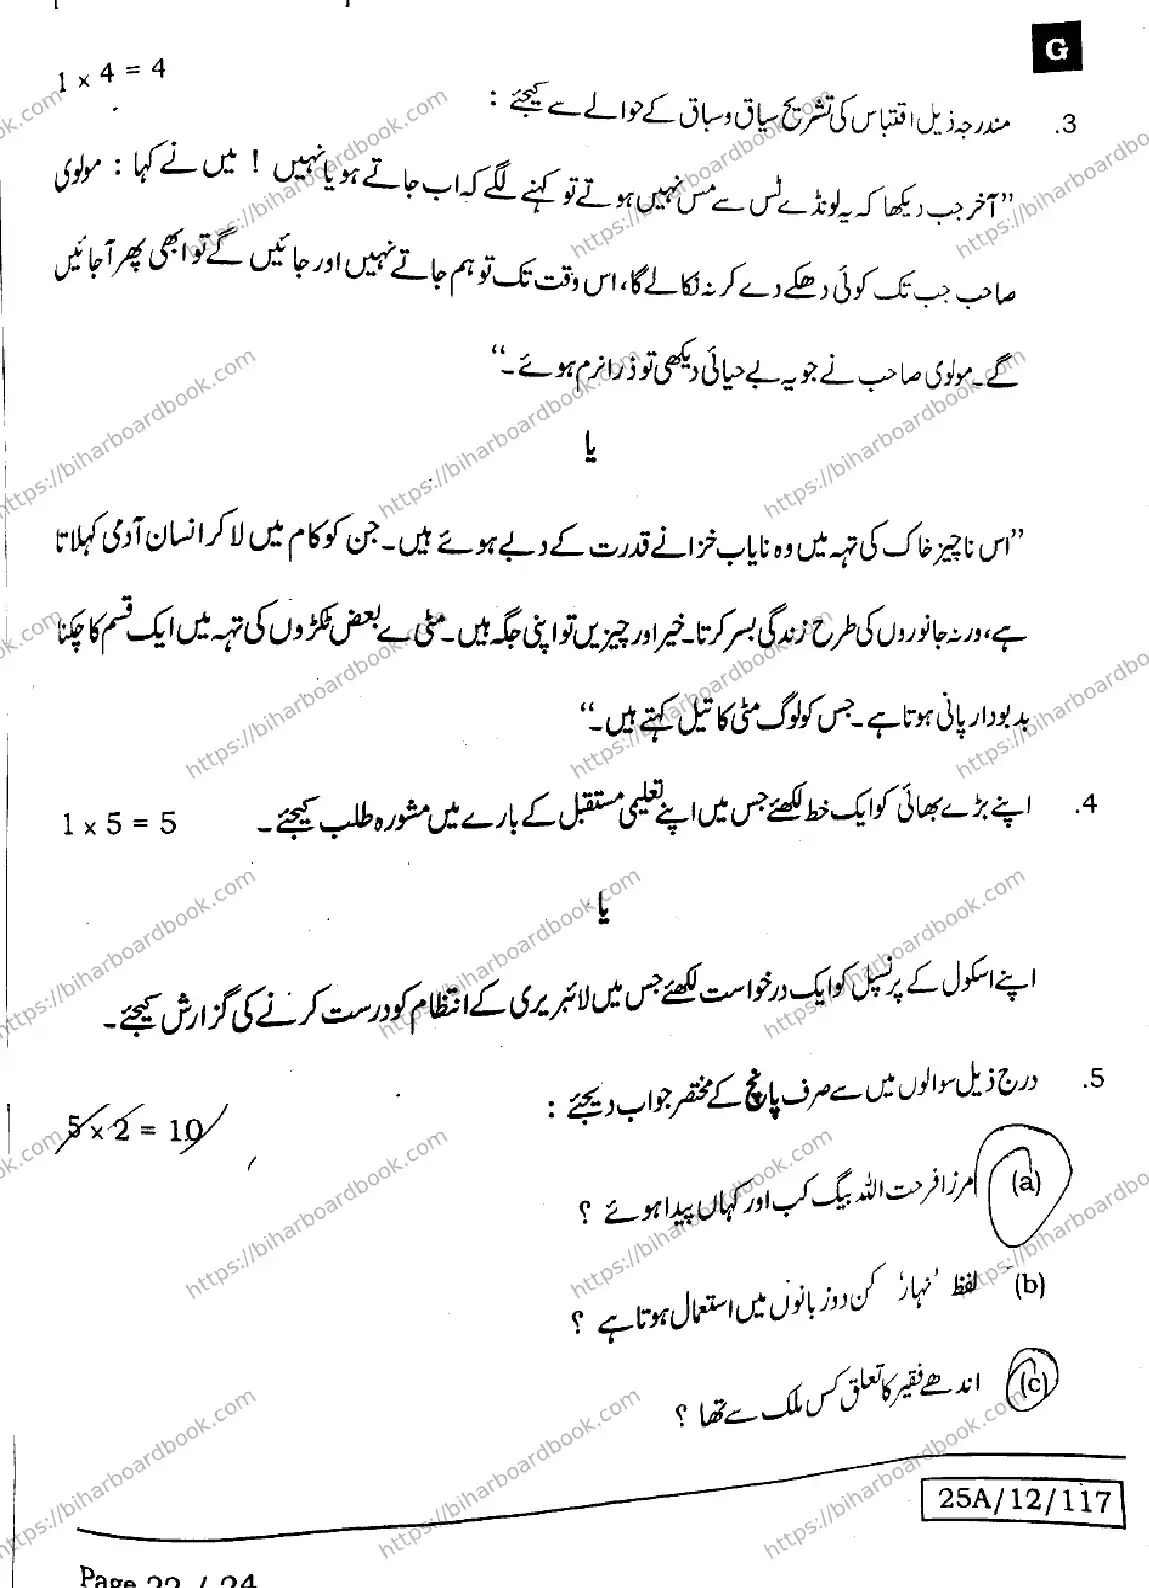 G
1 × 4 = 4
3. مندرجہ ذیل اقتباس کی تشریح سیاق و سباق کے حوالے سے کیجئے :
”آخر جب دیکھا کہ یہ لونڈے ٹس سے مس نہیں ہوتے تو کہنے لگے کہ اب جاتے ہو یا نہیں ! میں نے کہا : مولوی
صاحب جب تک کوئی دھکے دے کر نہ نکالے گا، اس وقت تک تو ہم جاتے نہیں اور جائیں گے تو ابھی پھر آجائیں
گے۔ مولوی صاحب نے جو یہ بے حیائی دیکھی تو ذرا نرم ہوئے۔“
یا
”اس ناچیز خاک کی تہہ میں وہ نایاب خزانے قدرت کے دبے ہوئے ہیں۔ جن کو کام میں لا کر انسان آدمی کہلاتا
ہے، ورنہ جانوروں کی طرح زندگی بسر کرتا۔ خیر اور چیزیں تو اپنی جگہ ہیں۔ مٹی کے بعض ٹکڑوں کی تہہ میں ایک قسم کا چکنا
بدبودار پانی ہوتا ہے۔ جس کو لوگ مٹی کا تیل کہتے ہیں۔“
4. اپنے بڑے بھائی کو ایک خط لکھئے جس میں اپنے تعلیمی مستقبل کے بارے میں مشورہ طلب کیجئے۔ 1 x 5 = 5
یا
اپنے اسکول کے پرنسپل کو ایک درخواست لکھئے جس میں لائبریری کے انتظام کو درست کرنے کی گزارش کیجئے۔
5. درج ذیل سوالوں میں سے صرف پانچ کے مختصر جواب دیجئے :
5 × 2 = 10
(a) مرزا فرحت اللہ بیگ کب اور کہاں پیدا ہوئے ؟
(b) لفظ ’نہار‘ کن دو زبانوں میں استعمال ہوتا ہے ؟
(c) اندھے فقیر کا تعلق کس ملک سے تھا ؟
25A/12/117
Page 22 / 24
https://biharboardbook.com